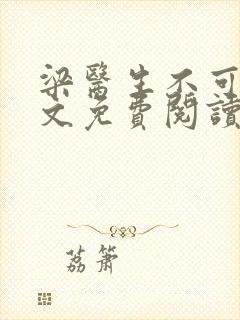 梁醫生不可
文免費閱讀
荔簫